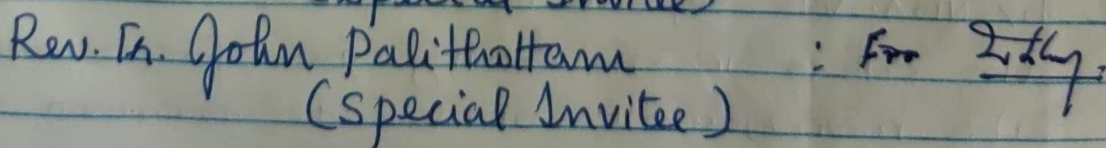 Rev. Fr. John Palithottam : Fr
(Special Invitee)